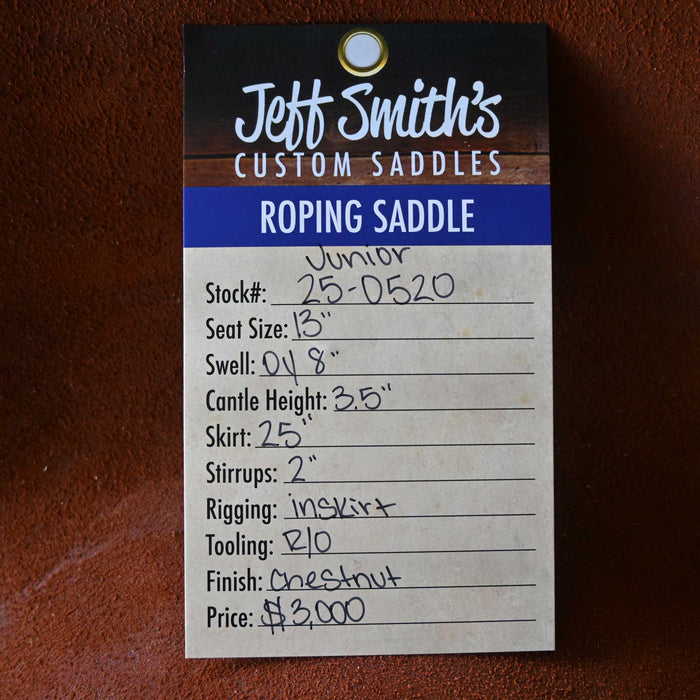 Jeff Smith's
CUSTOM SADDLES
ROPING SADDLE
Junior
Stock#: 25-0520
Seat Size: 13"
Swell: Oy 8"
Cantle Height: 3.5"
Skirt: 25"
Stirrups: 2"
Rigging: inskirt
Tooling: R/O
Finish: Chestnut
Price: $3,000